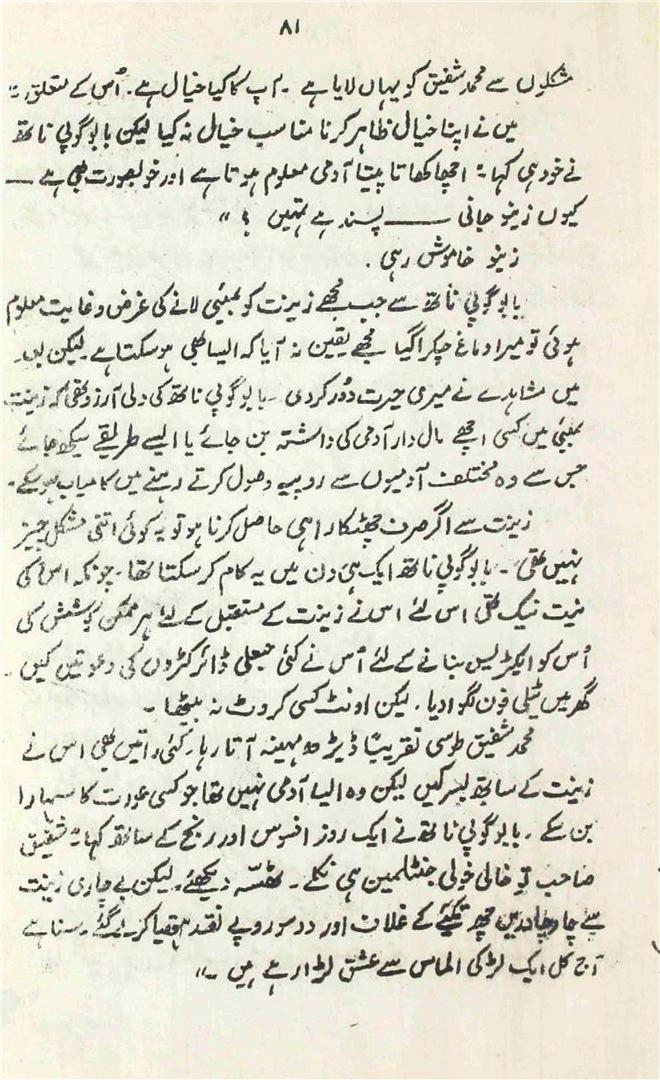 ۸۱
مشکلوں سے محمد شفیق کو یہاں لایا ہے ۔ آپ کا کیا خیال ہے ۔ اُس کے متعلق ؟"
میں نے اپنا خیال ظاہر کرنا مناسب خیال نہ کیا لیکن بابو گوپی ناتھ
نے خود ہی کہا " اچھا کھاتا پیتا آدمی معلوم ہوتا ہے اور خوبصورت بھی ہے ــــ
کیوں زینو جانی ــــــ پسند ہے تمہیں ؟ "
زینو خاموش رہی ۔
بابو گوپی ناتھ سے جب مجھے زینت کو بمبئی لانے کی غرض و غایت معلوم
ہوئی تو میرا دماغ چکرا گیا مجھے یقین نہ آیا کہ ایسا بھی ہو سکتا ہے لیکن بعد
میں مشاہدے نے میری حیرت دُور کر دی ۔ بابو گوپی ناتھ کی دلی آرزو تھی کہ زینت
بمبئی میں کسی اچھے مال دار آدمی کی داشتہ بن جائے یا ایسے طریقے سیکھ جائے
جس سے وہ مختلف آدمیوں سے روپیہ وصول کرتے رہنے میں کامیاب ہو سکے ۔
زینت سے اگر صرف چھٹکارا ہی حاصل کرنا ہوتا تو یہ کوئی اتنی مشکل چیز
نہیں تھی ۔ بابو گوپی ناتھ ایک ہی دن میں یہ کام کر سکتا تھا ۔ چونکہ اس کی
نیت نیک تھی اس لئے اس نے زینت کے مستقبل کے لئے ہر ممکن کوشش کی
اُس کو ایکٹریس بنانے کے لئے اُس نے کئی جعلی ڈائرکٹروں کی دعوتیں کیں ۔
گھر میں ٹیلی فون لگوا دیا ۔ لیکن اونٹ کسی کروٹ نہ بیٹھا ۔
محمد شفیق طوسی تقریباً ڈیڑھ مہینہ آتا رہا ۔ کئی راتیں بھی اس نے
زینت کے ساتھ بسر کیں لیکن وہ ایسا آدمی نہیں تھا جو کسی عورت کا سہارا
بن سکے ۔ بابو گوپی ناتھ نے ایک روز افسوس اور رنج کے ساتھ کہا " شفیق
صاحب تو خالی خولی جنٹلمین ہی نکلے ۔ ٹھسّہ دیکھئے ۔ لیکن بے چاری زینت
سے چار چادریں چھ تکیئے کے غلاف اور دو سو روپے نقد ہتھیا کر لے گئے ۔ سنا ہے
آج کل ایک لڑکی الماس سے عشق لڑا رہے ہیں ۔"